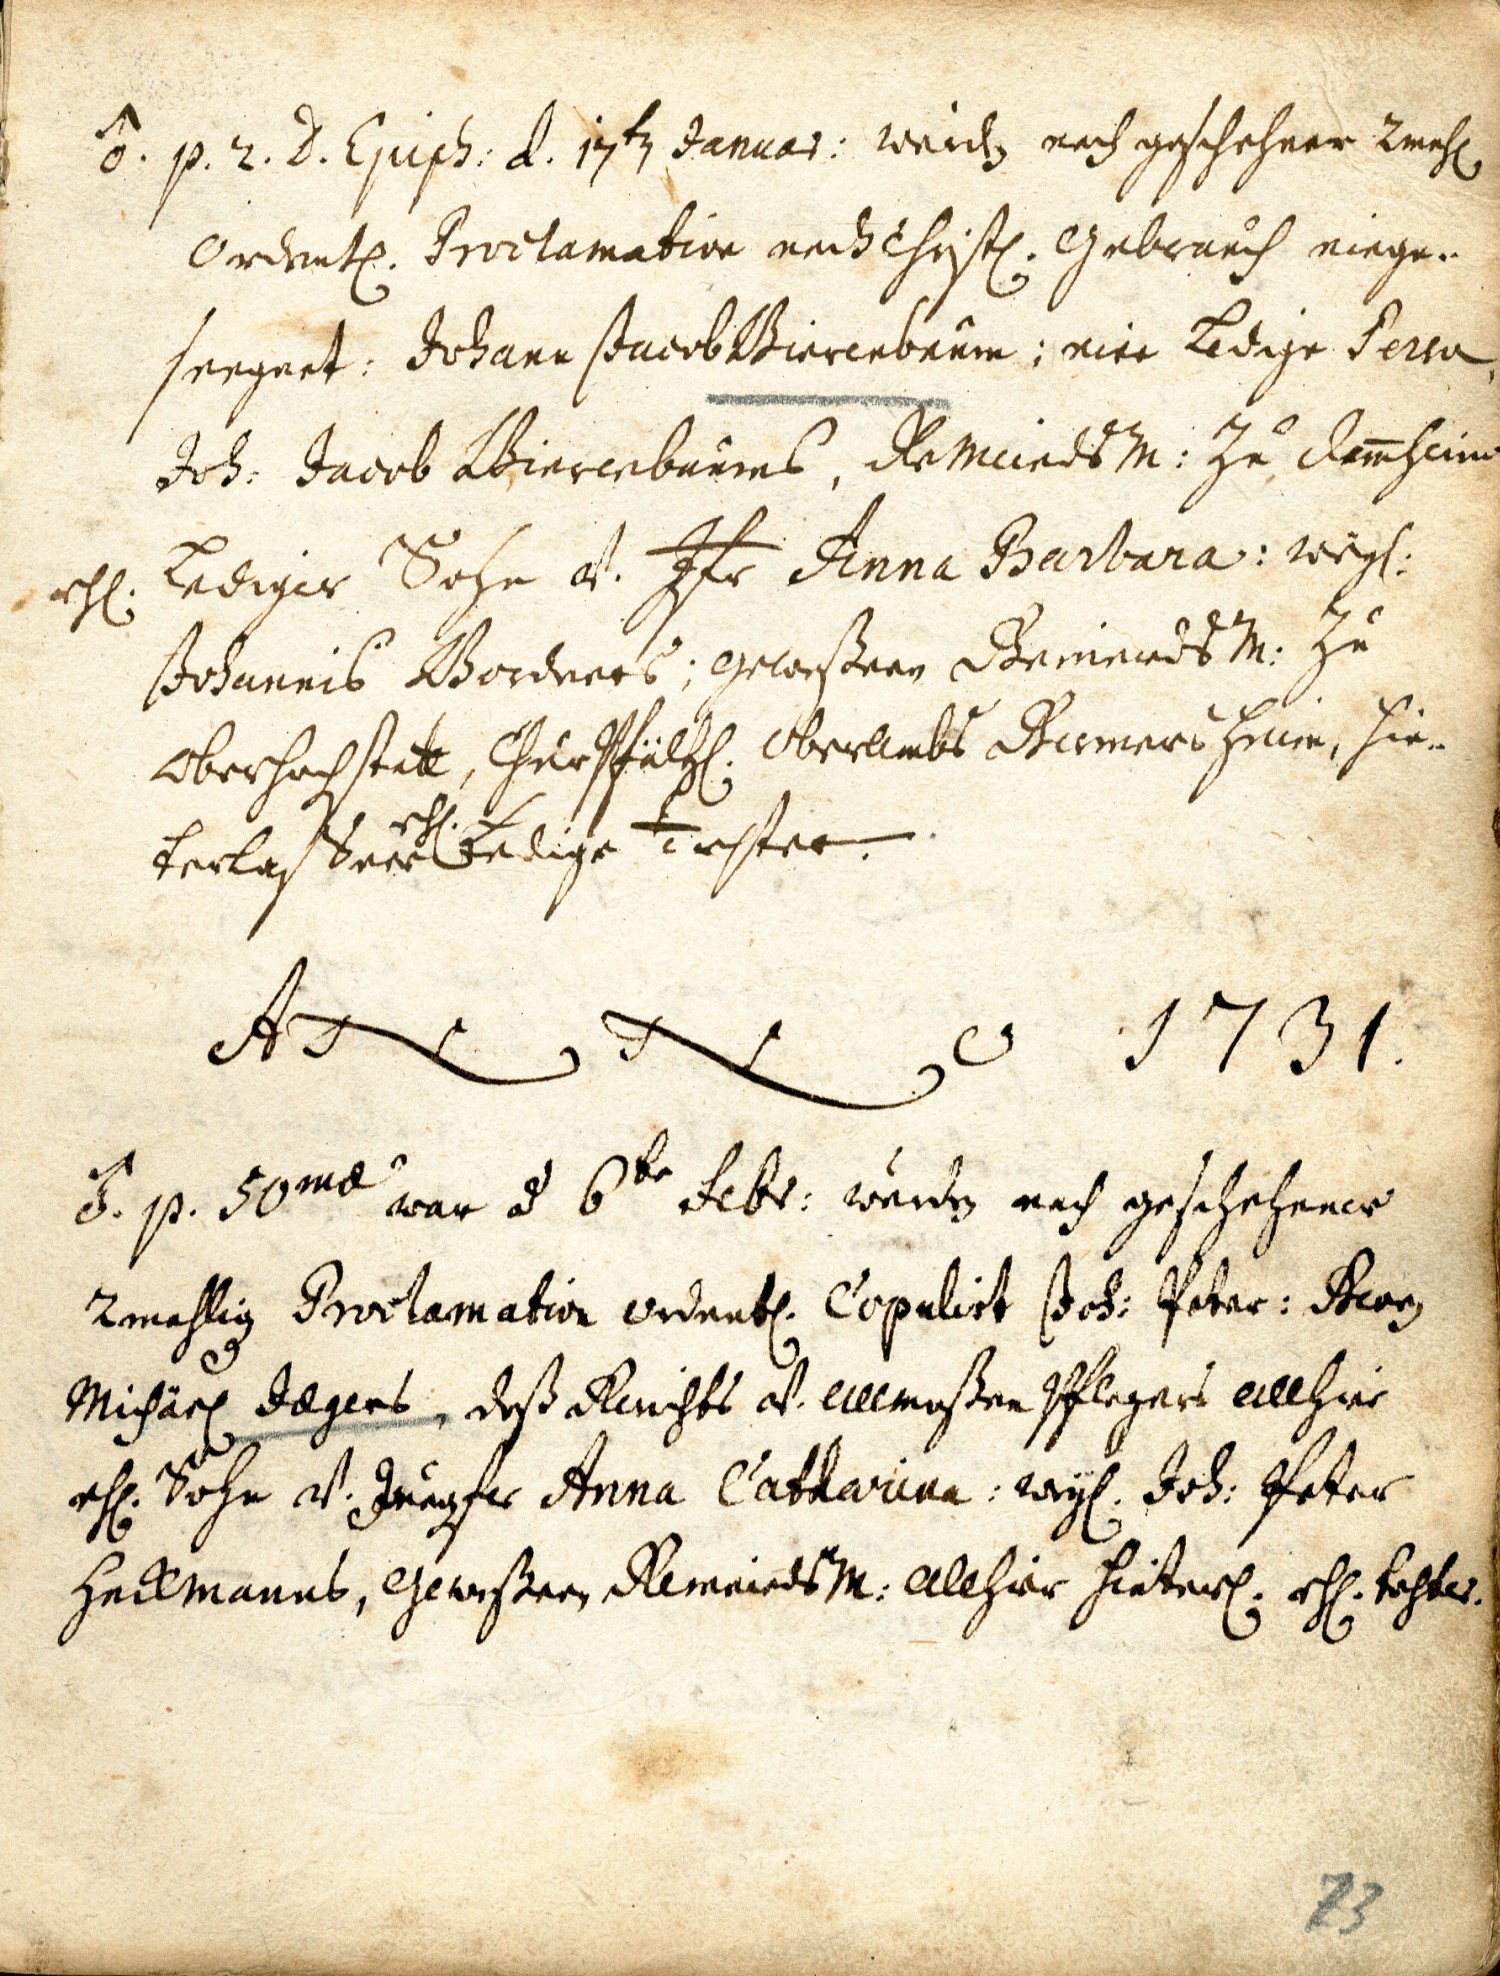 ♂. p. 2. D. Epiph: d. 17t. Januar: wurden nach geschehner 2mahl
Ordentl. Proclamation nach Christl. Gebrauch einge-
seegnet: Johann Jacob Bierenbaum; eine Ledige Person,
Joh: Jacob Bierenbaums, GemeindsM: zu
ehl. Lediger Sohn v. Jfr Anna Barbara: weyl:
Johannis Bordners; geweßenen GemeindsM: zu
Oberhochstatt, ChurPfältzl. Oberambts Germersheim, hin-
terlaßene ehl. Ledige Tochter.
Anno 1731.
♂. p. 50mæ war d 6te Febr: wurden nach geschehener
2mahlig Proclamation ordentl. Copulirt Joh: Peter: Georg
Michäel Jægers, deß Gerichts v. Allmoßen Pflegers Allhier
ehl. Sohn v. Jungfer Anna Catharina: weyl. Joh: Peter
Heckmanns, Geweßenen GemeindsM: Allhier hinterl. ehl. Tochter.
73